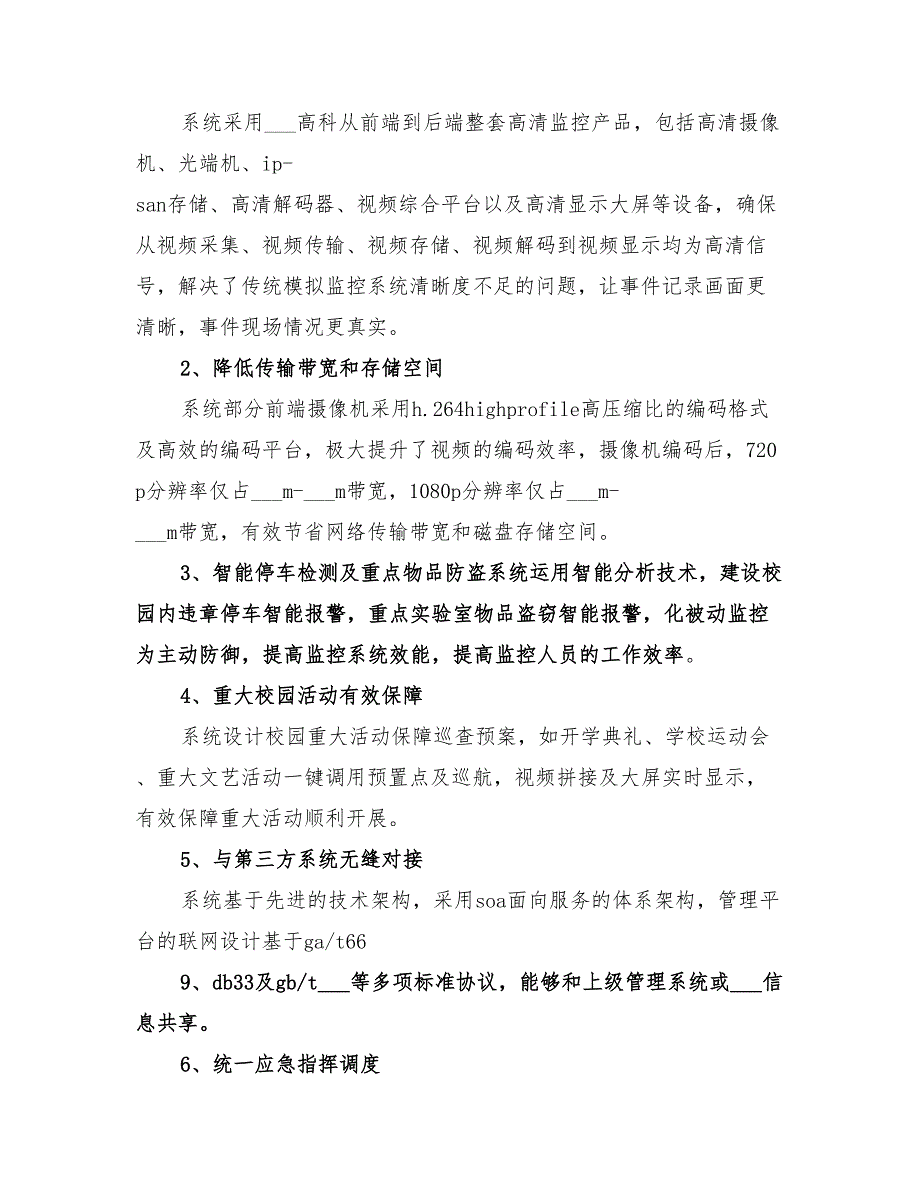 系统采用___高科从前端到后端整套高清监控产品，包括高清摄像
机、光端机、ip-
san存储、高清解码器、视频综合平台以及高清显示大屏等设备，确保
从视频采集、视频传输、视频存储、视频解码到视频显示均为高清信
号，解决了传统模拟监控系统清晰度不足的问题，让事件记录画面更
清晰，事件现场情况更真实。
2、降低传输带宽和存储空间
系统部分前端摄像机采用h.264highprofile高压缩比的编码格式
及高效的编码平台，极大提升了视频的编码效率，摄像机编码后，720
p分辨率仅占___m-___m带宽，1080p分辨率仅占___m-
___m带宽，有效节省网络传输带宽和磁盘存储空间。
3、智能停车检测及重点物品防盗系统运用智能分析技术，建设校
园内违章停车智能报警，重点实验室物品盗窃智能报警，化被动监控
为主动防御，提高监控系统效能，提高监控人员的工作效率。
4、重大校园活动有效保障
系统设计校园重大活动保障巡查预案，如开学典礼、学校运动会
、重大文艺活动一键调用预置点及巡航，视频拼接及大屏实时显示，
有效保障重大活动顺利开展。
5、与第三方系统无缝对接
系统基于先进的技术架构，采用soa面向服务的体系架构，管理平
台的联网设计基于ga/t66
9、db33及gb/t___等多项标准协议，能够和上级管理系统或___信
息共享。
6、统一应急指挥调度